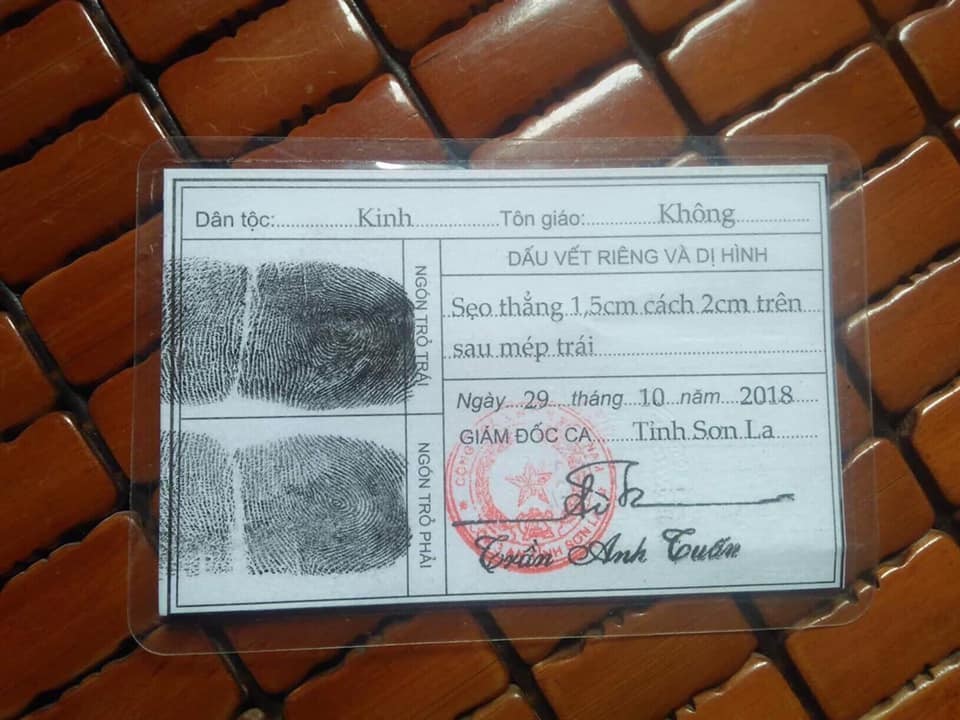 Dân tộc: Kinh Tôn giáo: Không
NGÓN TRỎ TRÁI
NGÓN TRỎ PHẢI
DẤU VẾT RIÊNG VÀ DỊ HÌNH
Sẹo thẳng 1,5cm cách 2cm trên
sau mép trái
Ngày 29 tháng 10 năm 2018
GIÁM ĐỐC CA Tỉnh Sơn La
Trần Anh Tuấn